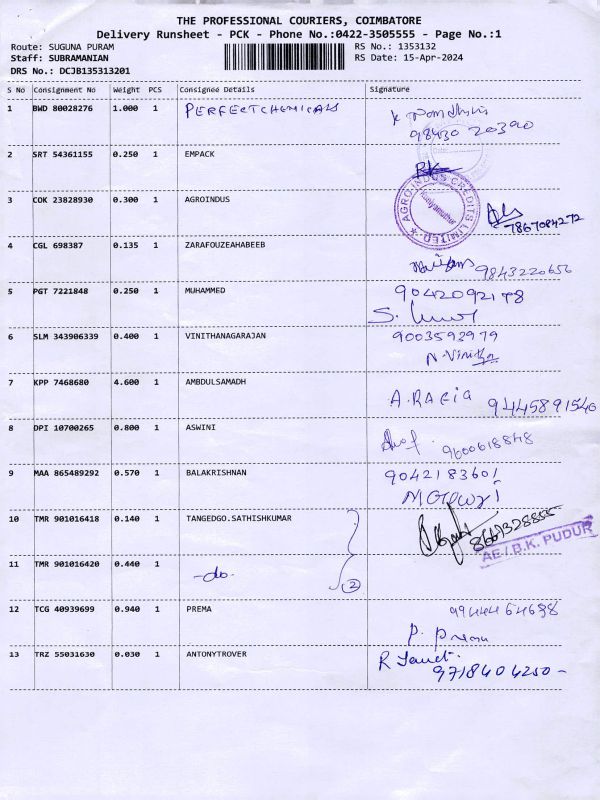 THE PROFESSIONAL COURIERS, COIMBATORE
Delivery Runsheet - PCK - Phone No.:0422-3505555 - Page No.:1
Route: SUGUNA PURAM RS No.: 1353132
Staff: SUBRAMANIAN RS Date: 15-Apr-2024
DRS No.: DCJB135313201
S No Consignment No Weight PCS Consignee Details Signature
1 BWD 80028276 1.000 1 PERFECTCHEMICALS
98430 20390
2 SRT 54361155 0.250 1 EMPACK
3 COK 23828930 0.300 1 AGROINDUS
AGROINDUS CREDITS LIMITED
Kuniyamuthur
7867084272
4 CGL 698387 0.135 1 ZARAFOUZEAHABEEB
9843220656
5 PGT 7221848 0.250 1 MUHAMMED
9042092178
6 SLM 343906339 0.400 1 VINITHANAGARAJAN
9003592979
N. Vinitha
7 KPP 7468680 4.600 1 AMBDULSAMADH
A. RAEIA 9445891540
8 DPI 10700265 0.800 1 ASWINI
9600618848
9 MAA 865489292 0.570 1 BALAKRISHNAN
9042183601
10 TMR 901016418 0.140 1 TANGEDGO.SATHISHKUMAR
8667328855
AE / B.K. PUDUR
11 TMR 901016420 0.440 1 -do.
2
12 TCG 40939699 0.940 1 PREMA
P. Prema
13 TRZ 55031630 0.030 1 ANTONYTROVER
9718404250-